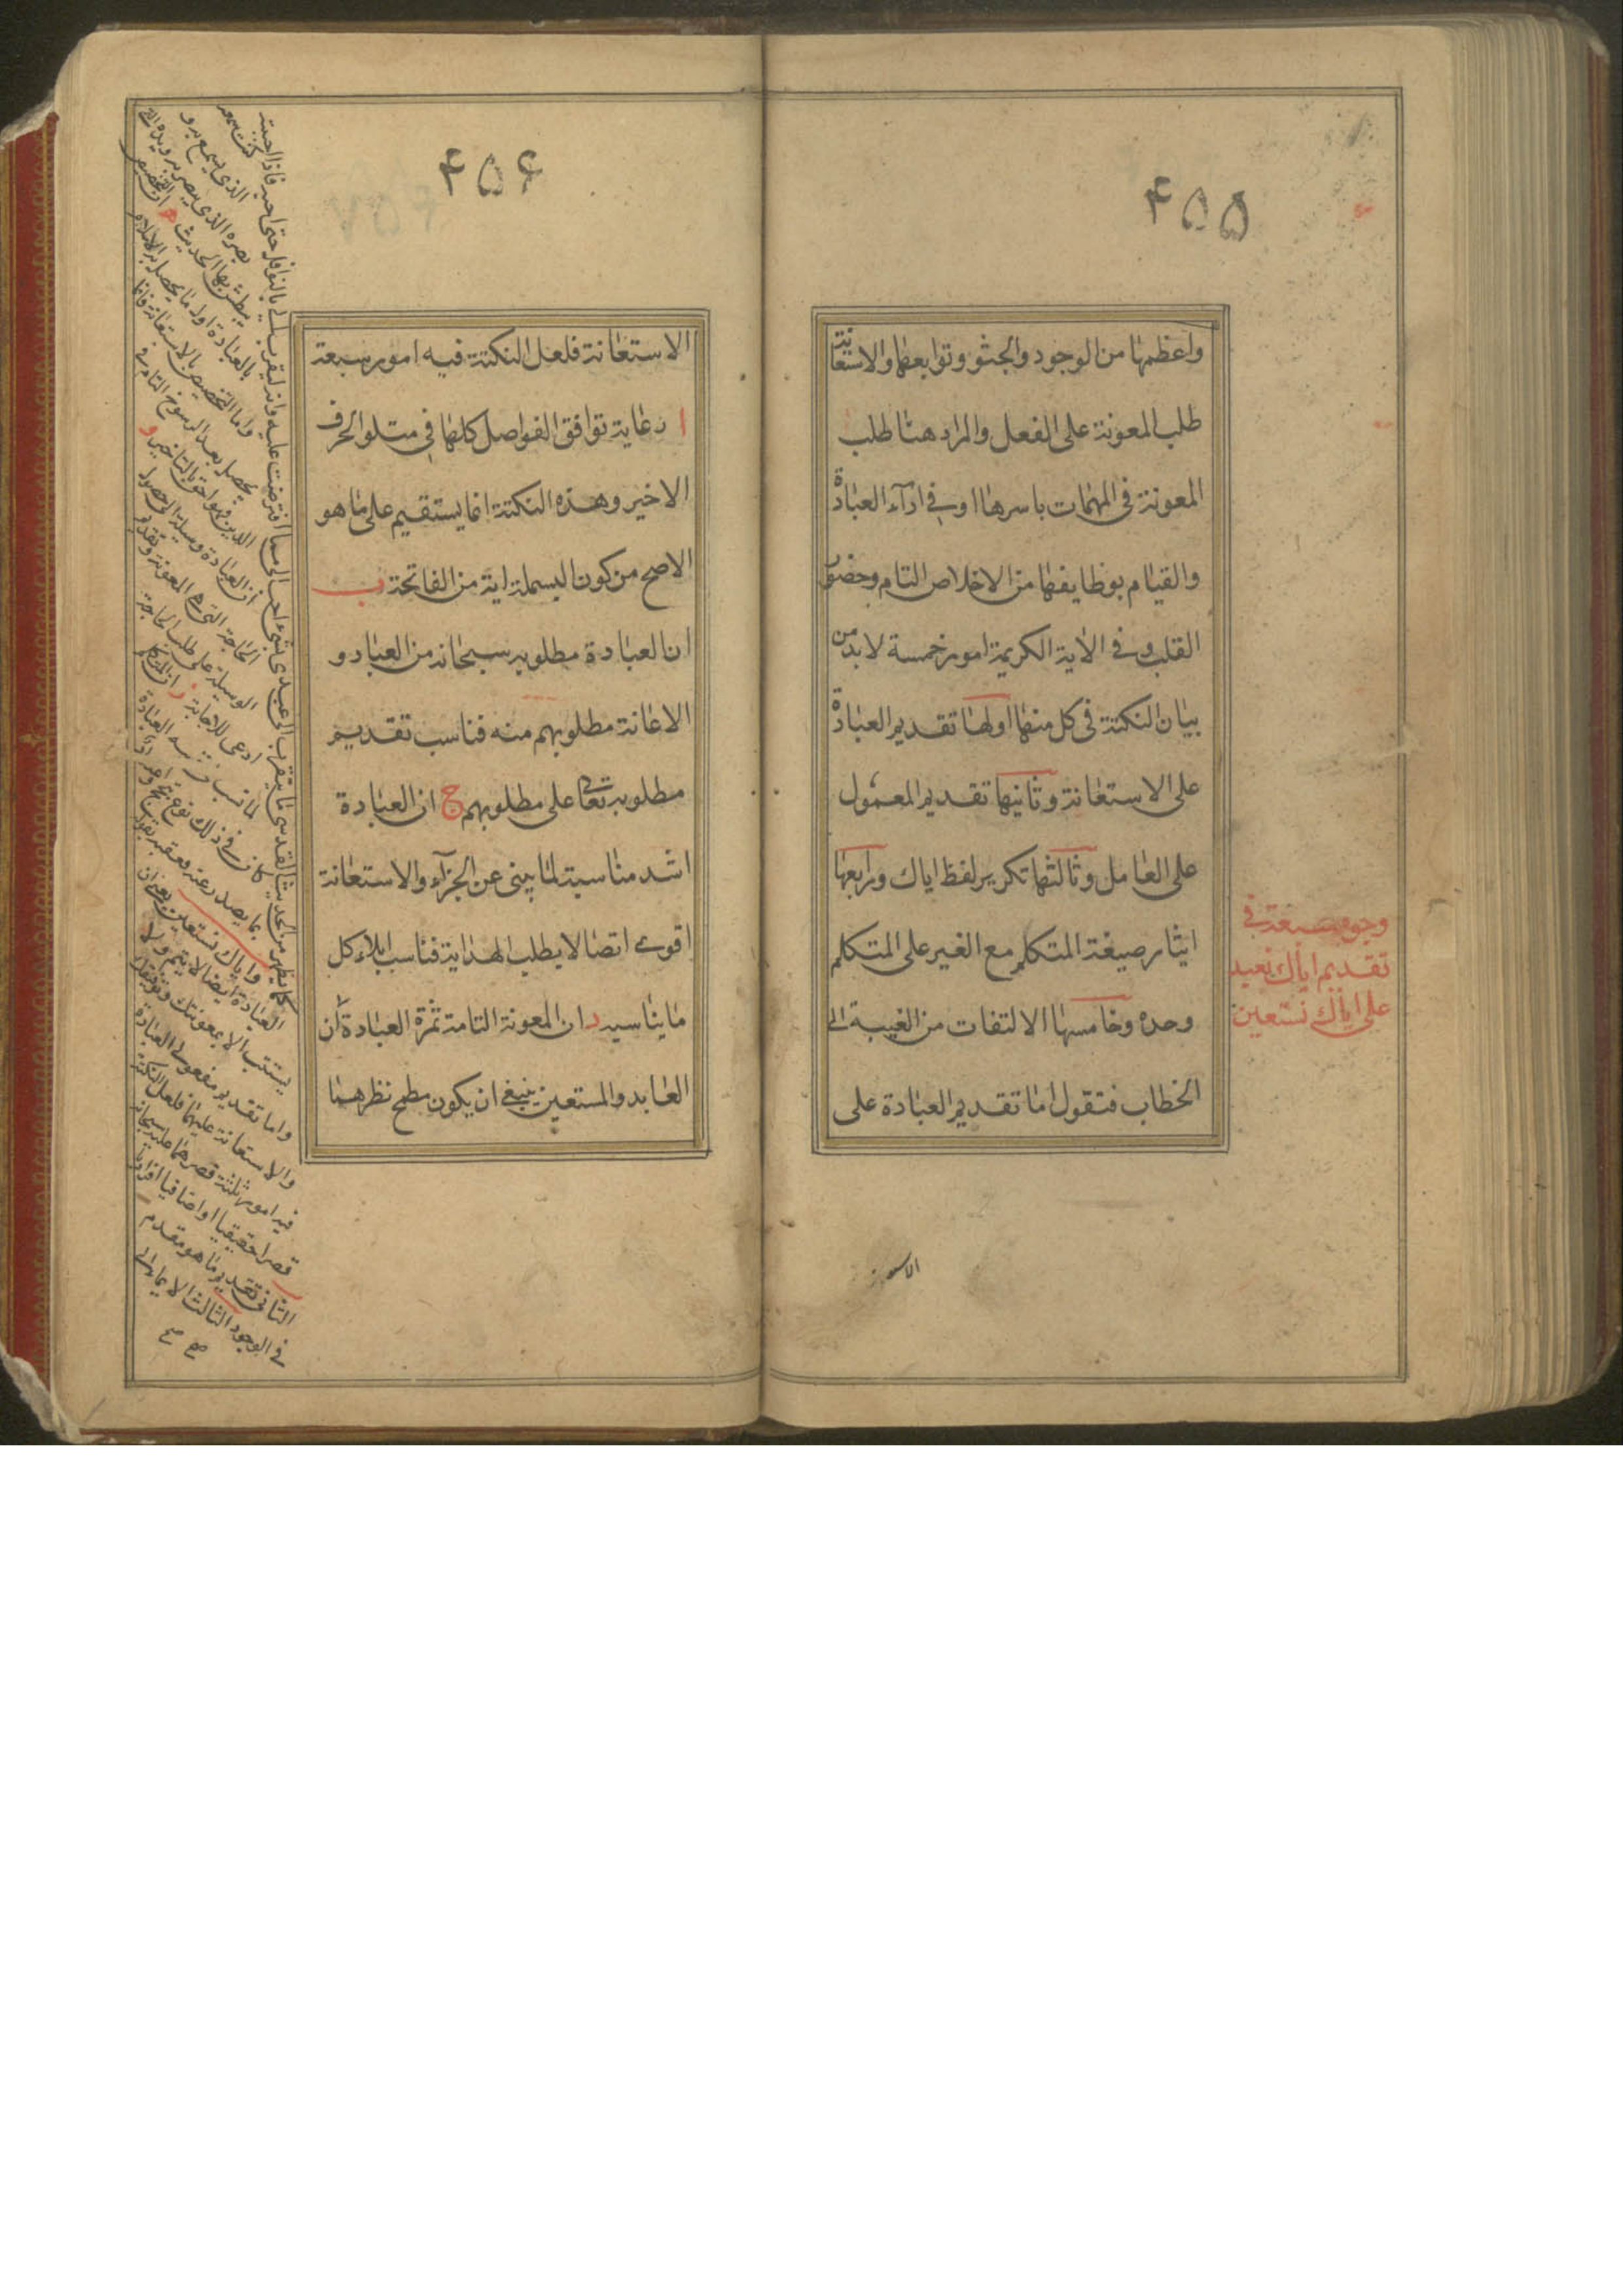 ۴۵۵
واعظمها من الوجود والحيوة وتوابعها والاستعانة
طلب المعونة على الفعل والمراد هنا طلب
المعونة فى المهمات باسرها او فى اداء العبادة
والقيام بوظايفها من الاخلاص التام وحضور
القلب وفى الاية الكريمة امور خمسة لابد من
بيان النكتة فى كل منها اولها تقديم العبادة
على الاستعانة وثانيها تقديم المعمول
على العامل وثالثها تكرير لفظ اياك ورابعها
ايثار صيغة المتكلم مع الغير على المتكلم
وحده وخامسها الالتفات من الغيبة الى
الخطاب فنقول اما تقديم العبادة على
وجوه سبعة فى
تقديم اياك نعبد
على اياك نستعين
۴۵۶
الاستعانة فلعل النكتة فيه امور سبعة
ا رعاية توافق الفواصل كلها فى متلو الحرف
الاخير وهذه النكتة انما يستقيم على ما هو
الاصح من كون البسملة اية من الفاتحة ب
ان العبادة مطلوبه سبحانه من العباد و
الاعانة مطلوبهم منه فناسب تقديم
مطلوبه تعالى على مطلوبهم ج ان العبادة
اشد مناسبة لما ينبئ عن الجزاء والاستعانة
اقوى اتصالا بطلب الهداية فناسب ايلاء كل
ما يناسبه د ان المعونة التامة ثمرة العبادة
العابد والمستعين ينبغى ان يكون مطمح نظرهما
كما يظهر من الحديث القدسى ما يتقرب الى عبدى بشىء احب الى مما افترضت عليه وانه ليتقرب الى بالنوافل حتى احبه فاذا احببته
كنت سمعه
الذى يسمع به و
بصره الذى يبصر به ويده التى
يبطش بها الحديث ه ان التخصيص
بالعبادة اول ما يحصل به الاسلام
واما التخصيص بالاستعانة فانما
يحصل بعد الرسوخ التام فى
الدين فهو احق بالتاخير و
ان العبادة وسيلة الى حصول
الحاجة التى هى المعونة وتقديم
الوسيلة على طلب الحاجة
ادعى للاجابة ز ان المتكلم
لما نسب الى نفسه العبادة
كان فى ذلك نوع
بما يصدر عنه فعقبه بقوله
واياك نستعين يعنى ان
العبادة ايضا لا تتم ولا
يستتب الا بمعونتك وتوفيقك
واما تقديم مفعولى العبادة
والاستعانة عليهما فلعل النكتة
فيه امور ثلثة قصرهما عليه سبحانه
قصرا حقيقيا او اضافيا افراديا
الثانى تقديم ما هو مقدم
فى الوجود الثالث الايماء الى